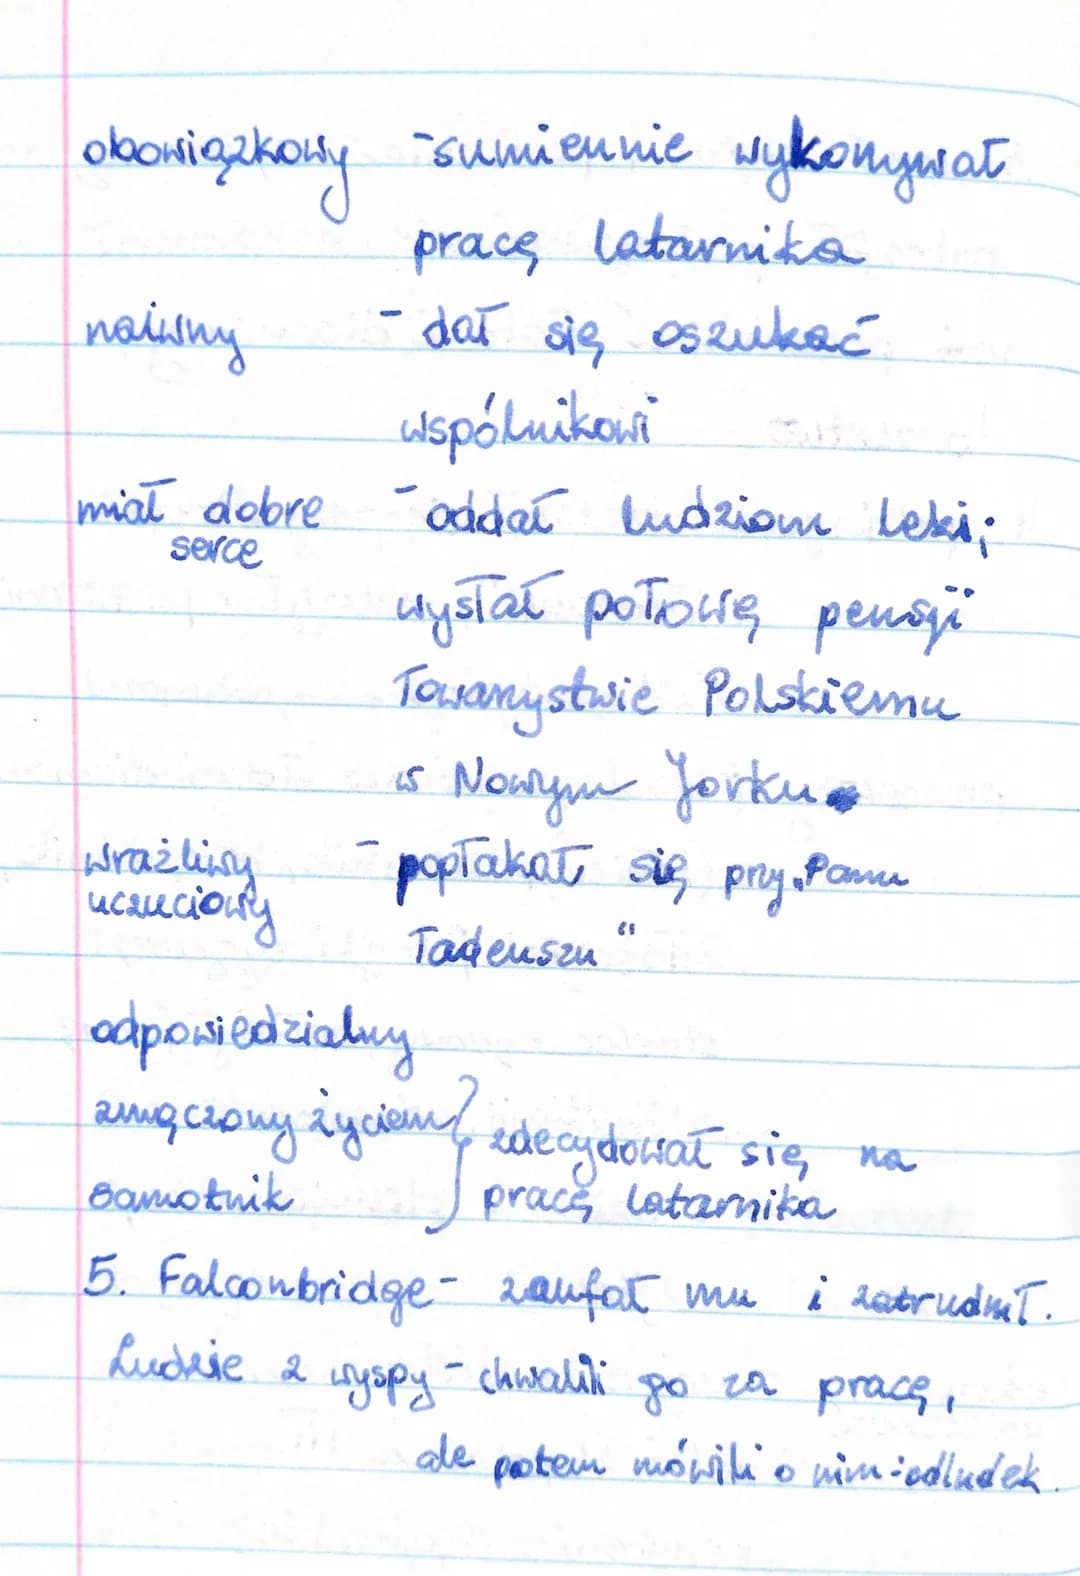 obowiązkowy - sumiennie wykonywał
pracę latarnika
naiwny - dał się oszukać
wspólnikowi
miał dobre - oddał ludziom leki;
serce
wysłał połowę pensji
Towarzystwie Polskiemu
w Nowym Jorku
wrażliwy - popłakał się przy „Panu
uczuciowy
Tadeuszu"
odpowiedzialny
zmęczony życiem } zdecydował się na
samotnik pracę latarnika
5. Falconbridge - zaufał mu i zatrudnił.
Ludzie z wyspy - chwalili go za pracę,
ale potem mówili o nim: odludek.